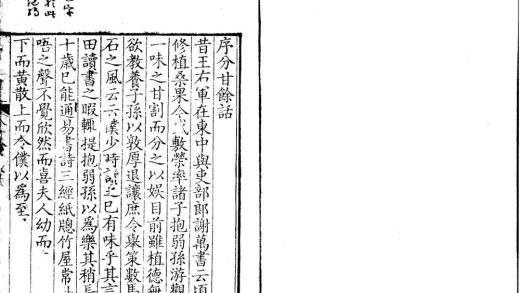 序分甘餘話
昔王右軍在東中與吏部郎謝萬書云頃
修植桑果今盛敷榮率諸子抱弱孫游觀
一味之甘割而分之以娱目前雖植德無
欲教養子孫以敦厚退讓庶令舉策數馬
石之風云云僕少時誦之已有味乎其言
田讀書之暇輒提抱弱孫以為樂其稍長
十歲已能通易書詩三經紙牕竹屋常
唔之聲不覺欣然而喜夫人幼而
下而黄散上而令僕以為至